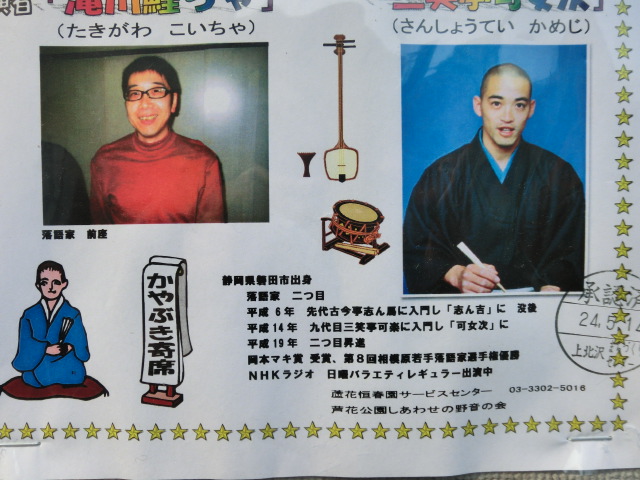 「滝川鯉ちゃ」
(たきがわ こいちゃ)
(さんしょうてい かめじ)
落語家 前座
かやぶき寄席
静岡県磐田市出身
落語家 二つ目
平成 6年 先代古今亭志ん馬に入門し「志ん吉」に 没後
平成14年 九代目三笑亭可楽に入門し「可女次」に
平成19年 二つ目昇進
岡本マキ賞 受賞、第8回相模原若手落語家選手権優勝
NHKラジオ 日曜バラエティレギュラー出演中
蘆花恒春園サービスセンター 03-3302-5016
芦花公園しあわせの野音の会
承認済
24.5.1
上北沢